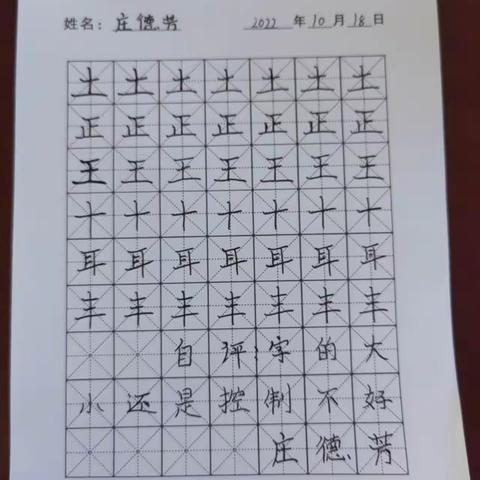 姓名：庄德芳 2022 年 10 月 18 日
土土土土土土土
正正正正正正正
王王王王王王王
十十十十十十十
耳耳耳耳耳耳耳
丰丰丰丰丰丰丰
自评：字的大
小还是控制不好
庄德芳